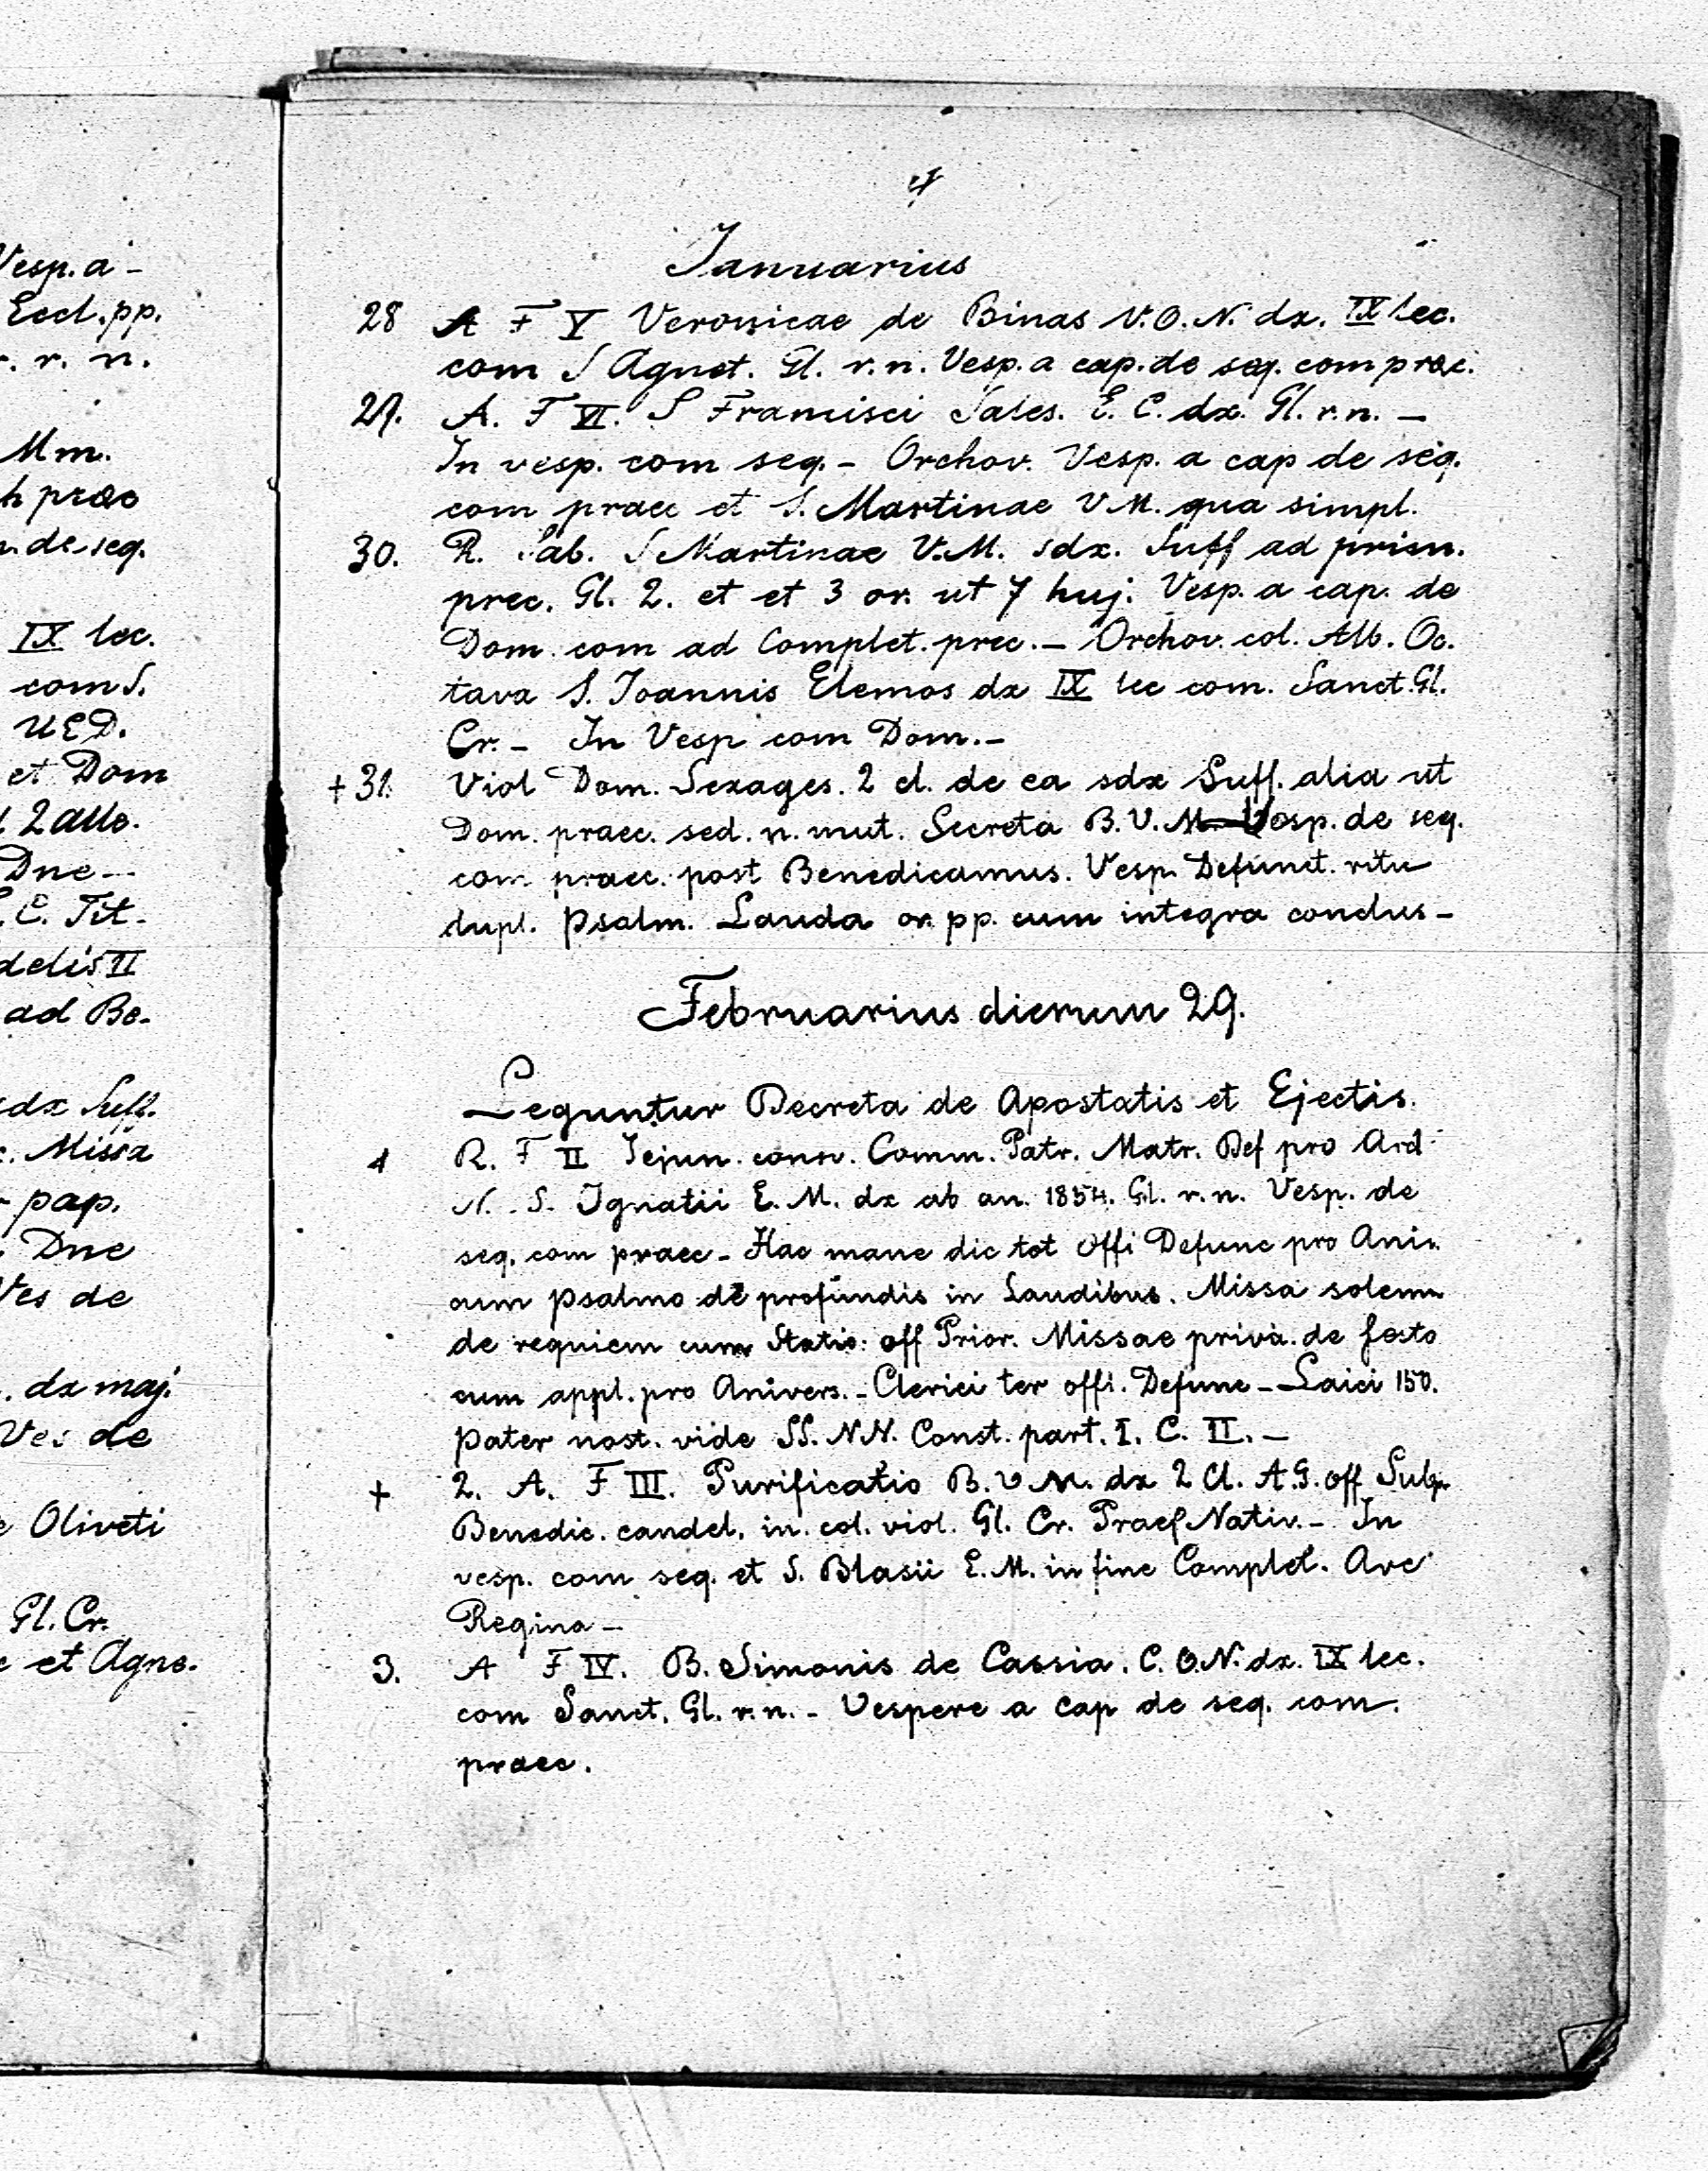 Vesp. a -
Eccl. pp.
r. n.
Mm.
prae
de seq.
IX lec.
com S.
U E D.
et Dom
2 alle.
Dne -
C. Tit.
delis II
ad Be-
sdx Suff.
Missa
pap.
Dne
Ves de
dx maj.
Ves de
Oliveti
Gl. Cr.
et Agne.
4
Ianuarius
28 A F V Veronicae de Binas V. O. N. dx. IX lec.
com S Agnet. Gl. r. n. Vesp. a cap. de seq. com praec.
29. A. F VI. S Francisci Sales. E. C. dx. Gl. r. n. -
In vesp. com seq. - Orchov. Vesp. a cap de seq.
com praec et S. Martinae V M. qua simpl.
30. R. Sab. S Martinae V. M. sdx. Suff ad prim.
prec. Gl. 2. et et 3 or. ut 7 huj. Vesp. a cap. de
Dom com ad Complet. prec. - Orchov. col. Alb. Oc.
tava S. Joannis Elemos dx IX lec com. Sanct. Gl.
Cr. - In Vesp com Dom. -
+ 31. Viol Dom. Sexages. 2 cl. de ea sdx Suff. alia ut
Dom. praec. sed. n. mut. Secreta B. V. M. Vesp. de seq.
com praec. post Benedicamus. Vesp. Defunct. ritu
dupl. Psalm. Lauda or. pp. cum integra conclus -
Februarius dierum 29.
Leguntur Decreta de Apostatis et Ejectis.
1 R. F II Jejun. consv. Comm. Patr. Matr. Def pro Ard
N. S. Ignatii E. M. dx ab an. 1854. Gl. r. n. Vesp. de
seq. com praec - Hac mane dic tot Offi Defunc pro Aniv.
cum Psalmo de profundis in Laudibus. Missa solemn
de requiem cum Statio: off Prior. Missae priva. de festo
cum appl. pro Anivers. - Clerici ter offi. Defunc - Laici 150.
Pater nost. vide SS. NN. Const. part. I. C. II. -
+ 2. A. F III. Purificatio B. V M. dx 2 Cl. A. G. off Subp.
Benedic. candel. in. col. viol. Gl. Cr. Praef Nativ. - In
vesp. com seq. et S. Blasii E. M. in fine Complet. Ave
Regina -
3. A F IV. B. Simonis de Cassia. C. O. N. dx. IX lec.
com Sanct. Gl. r. n. - Vespere a cap de seq. com.
praec.